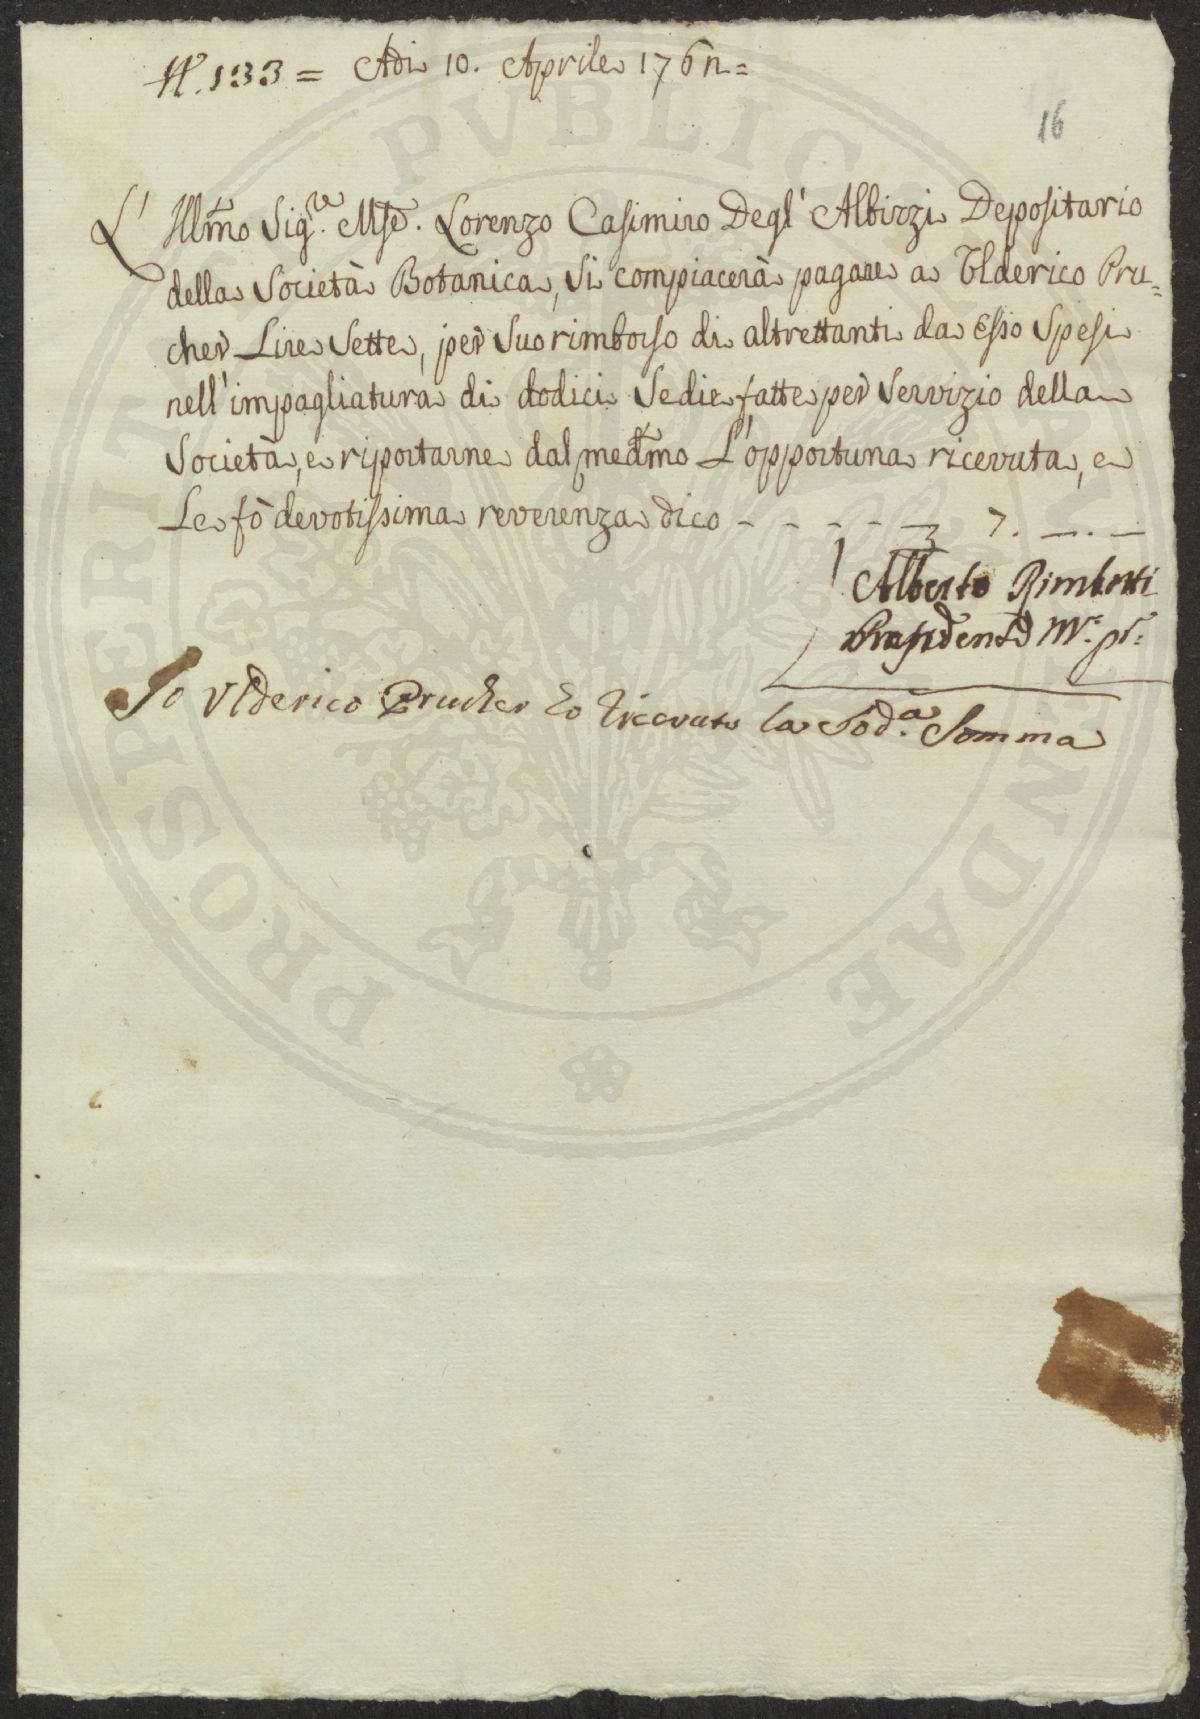 N.133 = Adi 10. Aprile 176
16
L' Illmo Sig.re Mse. Lorenzo Casimiro Degl' Albizzi Depositario
della Società Botanica, Si compiacerà pagare a Ulderico Pru=
cher Lire Sette, per Suo rimborso di altrettanti da Esso Spesi
nell'impagliatura di dodici Sedie fatte per Servizio della
Società, e riportarne dal medmo L'opportuna ricevuta, e
Le fò devotissima reverenza dico - - - - - 7. —.—
Alberto Rimbotti
Presidente Mr. pr.
Io Vlderico Prucher ho ricevuto la Sod.a Somma
PROSPERITATI PVBLICAE AVGENDAE